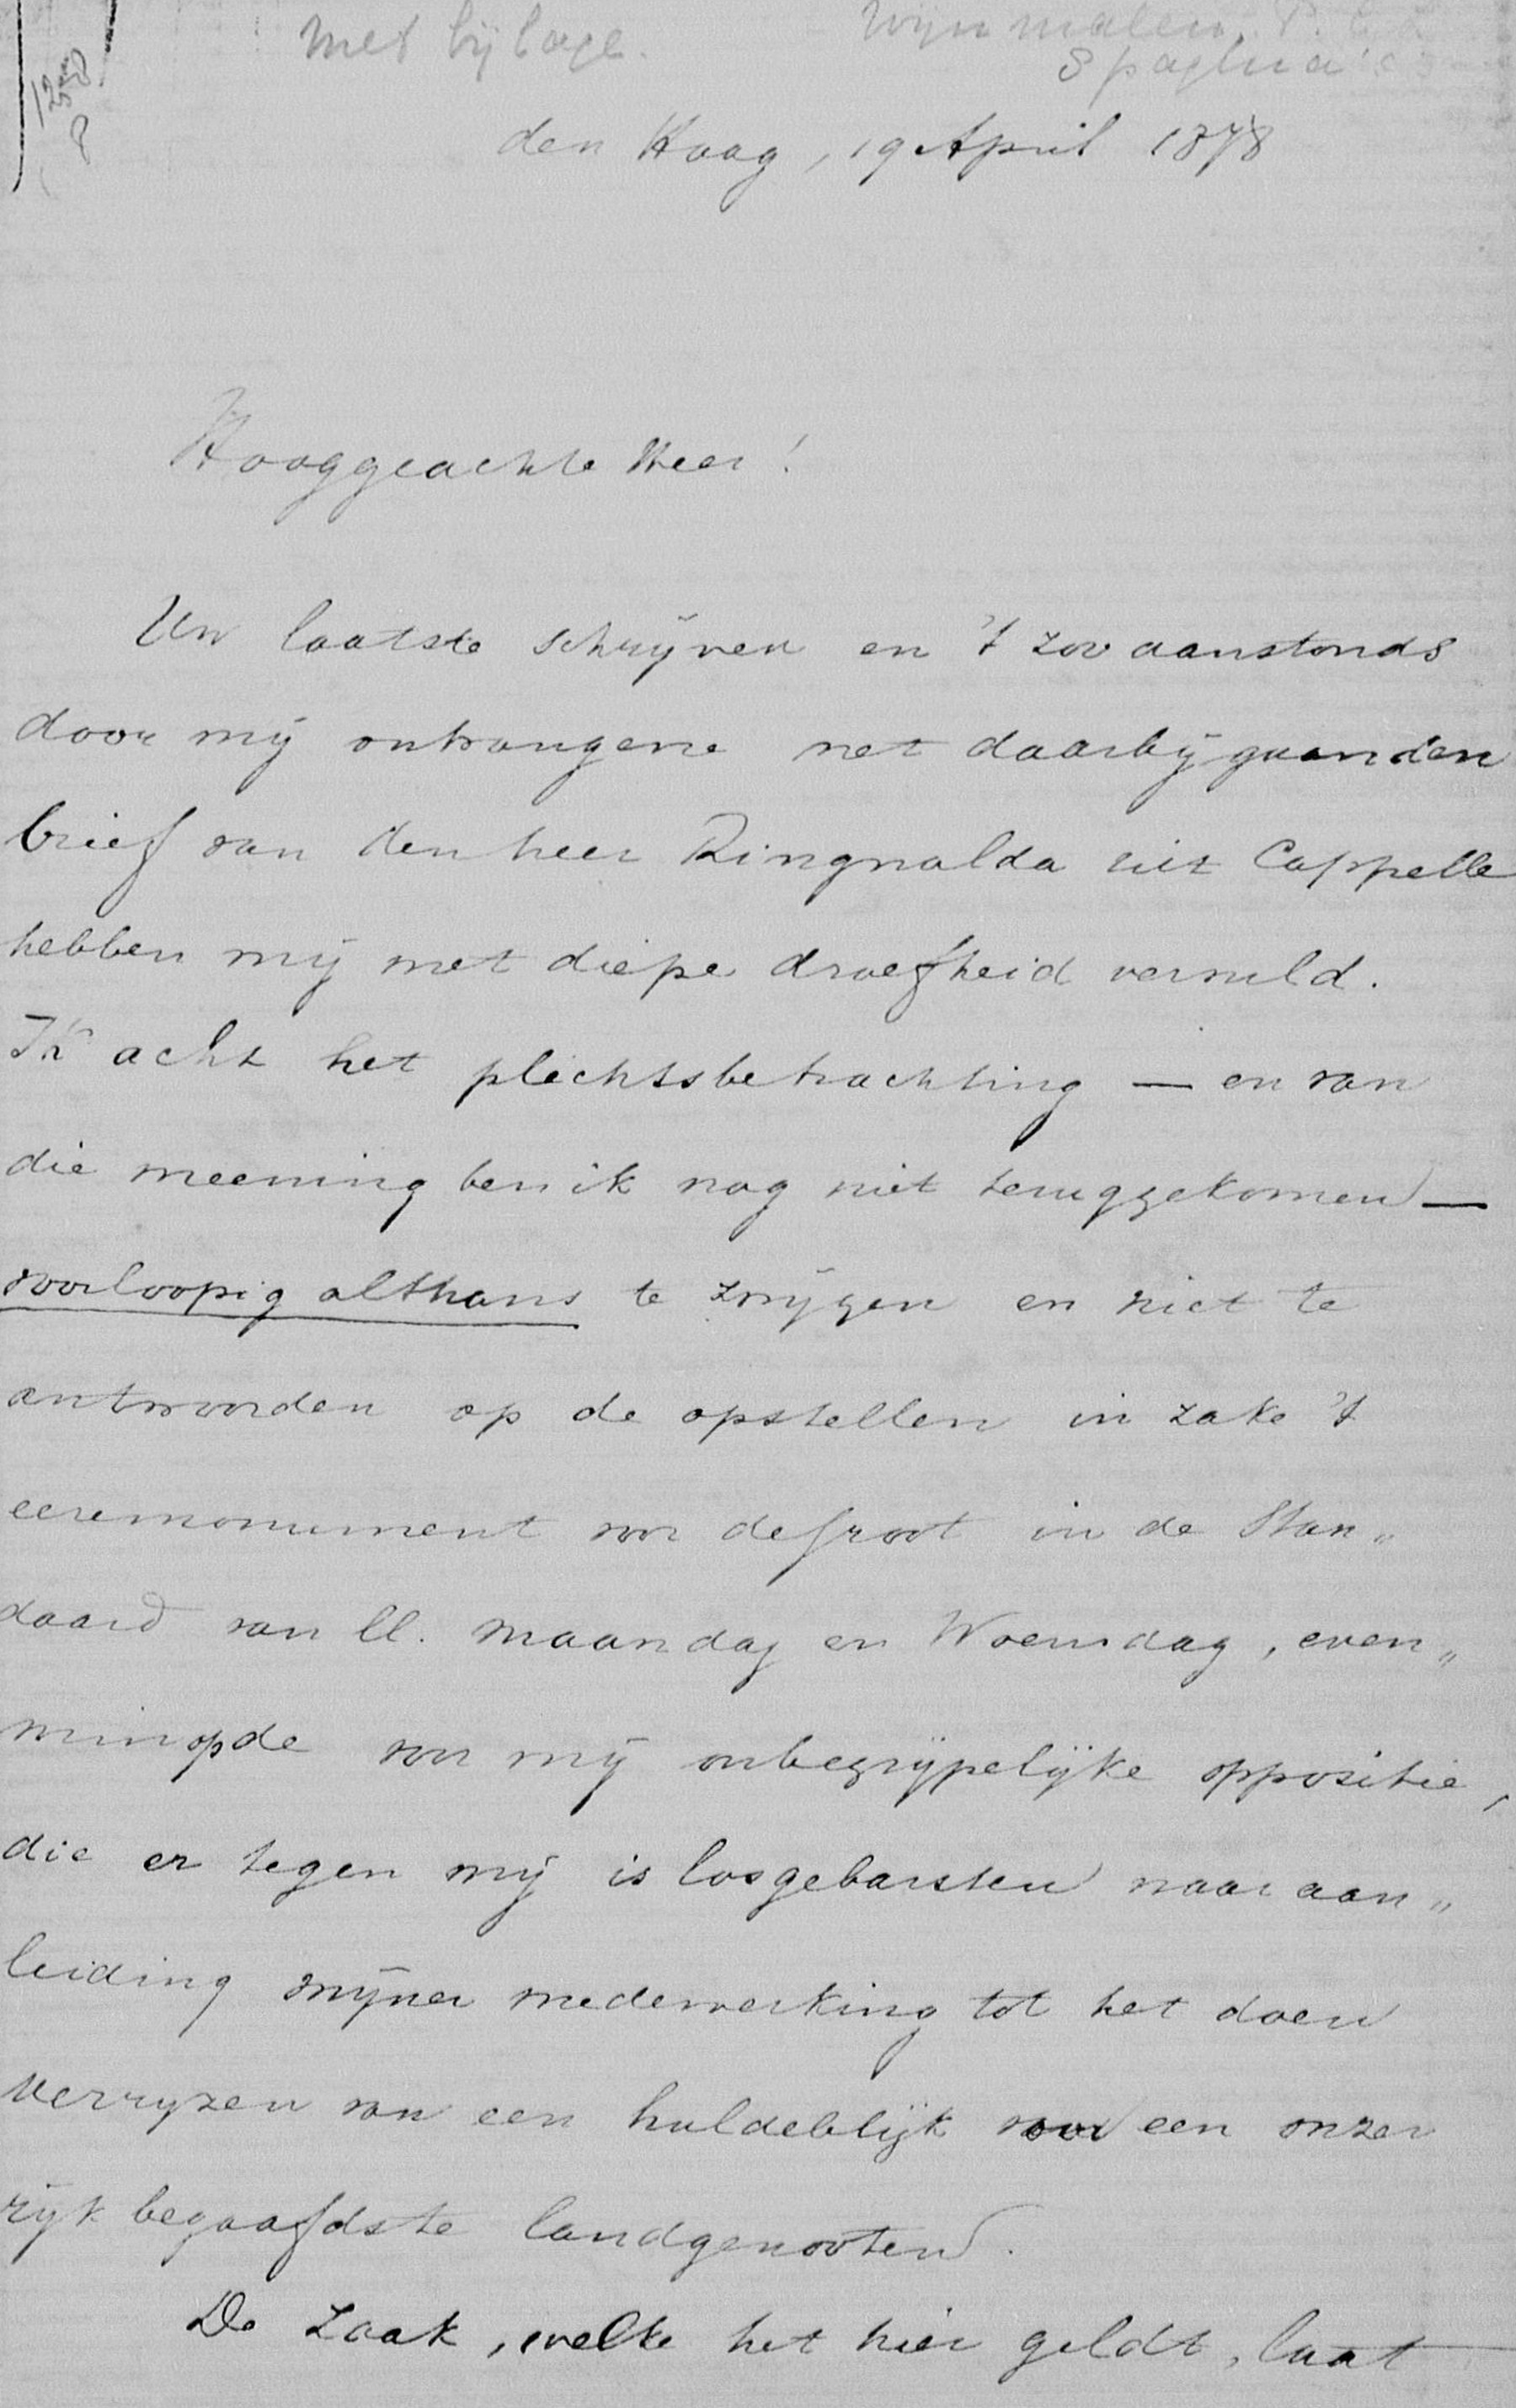 met bijlage.
Wijnmalen
den Haag, 19 April 1878
Hooggeachte Heer!
Uw laatste schrijven en 't zoo aanstonds
door mij ontvangene met daarbij gaanden
brief van den heer Ringnalda uit Cappelle
hebben mij met diepe droefheid vervuld.
Ik acht het plichtsbetrachting — en van
die meening ben ik nog niet teruggekomen —
voorloopig althans te zwijgen en niet te
antwoorden op de opstellen in zake 't
eeremonument voor de Groot in de Stan„
daard van ll. Maandag en Woensdag, even„
min op de voor mij onbegrijpelijke oppositie,
die er tegen mij is losgebarsten naar aan„
leiding mijner medewerking tot het doen
verrijzen van een huldeblijk voor een onzer
rijk begaafdste landgenooten.
De zaak, welke het hier geldt, laat